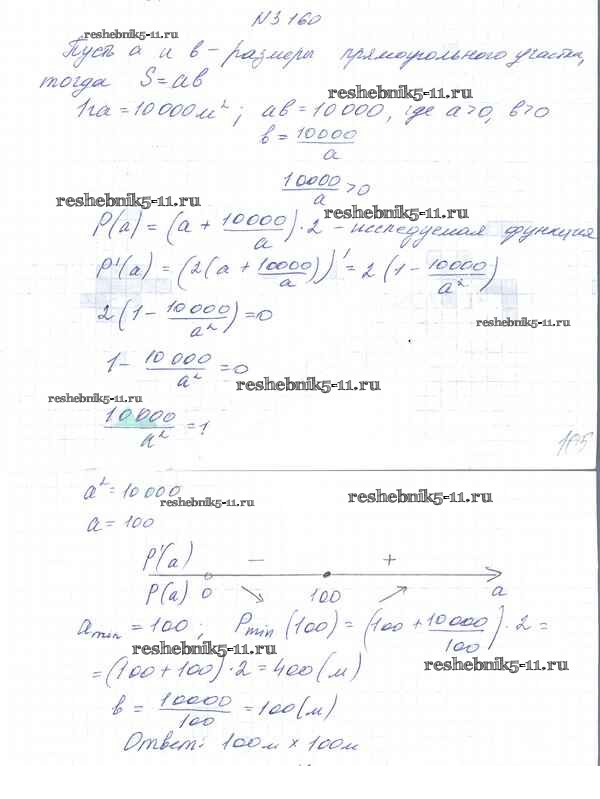 №3 160
reshebnik5-11.ru
Пусть а и в - размеры прямоугольного участка,
тогда S = ав
reshebnik5-11.ru
1га = 10 000 м²; ав = 10 000, где а>0, в>0
в = 10000/а
10000/а > 0
reshebnik5-11.ru
reshebnik5-11.ru
P(a) = (a + 10000/a) · 2 - исследуемая функция
P'(a) = (2(a + 10000/a))' = 2(1 - 10000/a²)
2(1 - 10000/a²) = 0
reshebnik5-11.ru
1 - 10 000/a² = 0
reshebnik5-11.ru
reshebnik5-11.ru
10000/a² = 1
a² = 10 000
reshebnik5-11.ru
reshebnik5-11.ru
a = 100
P'(a) - +
P(a) 0 100 a
a min = 100; P min (100) = (100 + 10000/100) · 2 =
reshebnik5-11.ru
= (100 + 100) · 2 = 400 (м)
reshebnik5-11.ru
в = 10000/100 = 100 (м)
Ответ: 100м х 100м